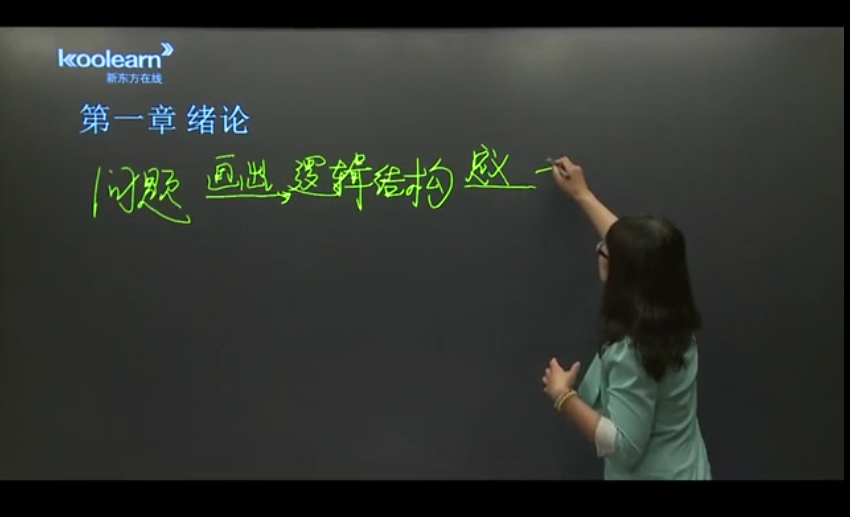 koolearn
新东方在线
第一章 绪论
问题 画出 逻辑结构